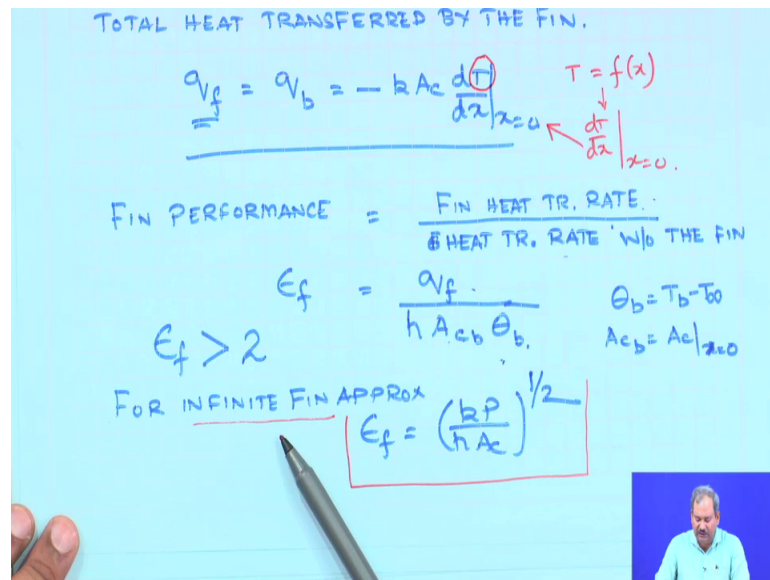 TOTAL HEAT TRANSFERRED BY THE FIN.
q_f = q_b = - k A_c dT/dx|x=0
T = f(x)
↓
dT/dx|x=0.
FIN PERFORMANCE = FIN HEAT TR. RATE. / HEAT TR. RATE W/O THE FIN
ϵ_f = q_f. / h A_cb θ_b.
θ_b = T_b - T∞
ϵ_f > 2
A_cb = A_c|x=0
FOR INFINITE FIN APPROX
ϵ_f = (kP / hA_c)^1/2